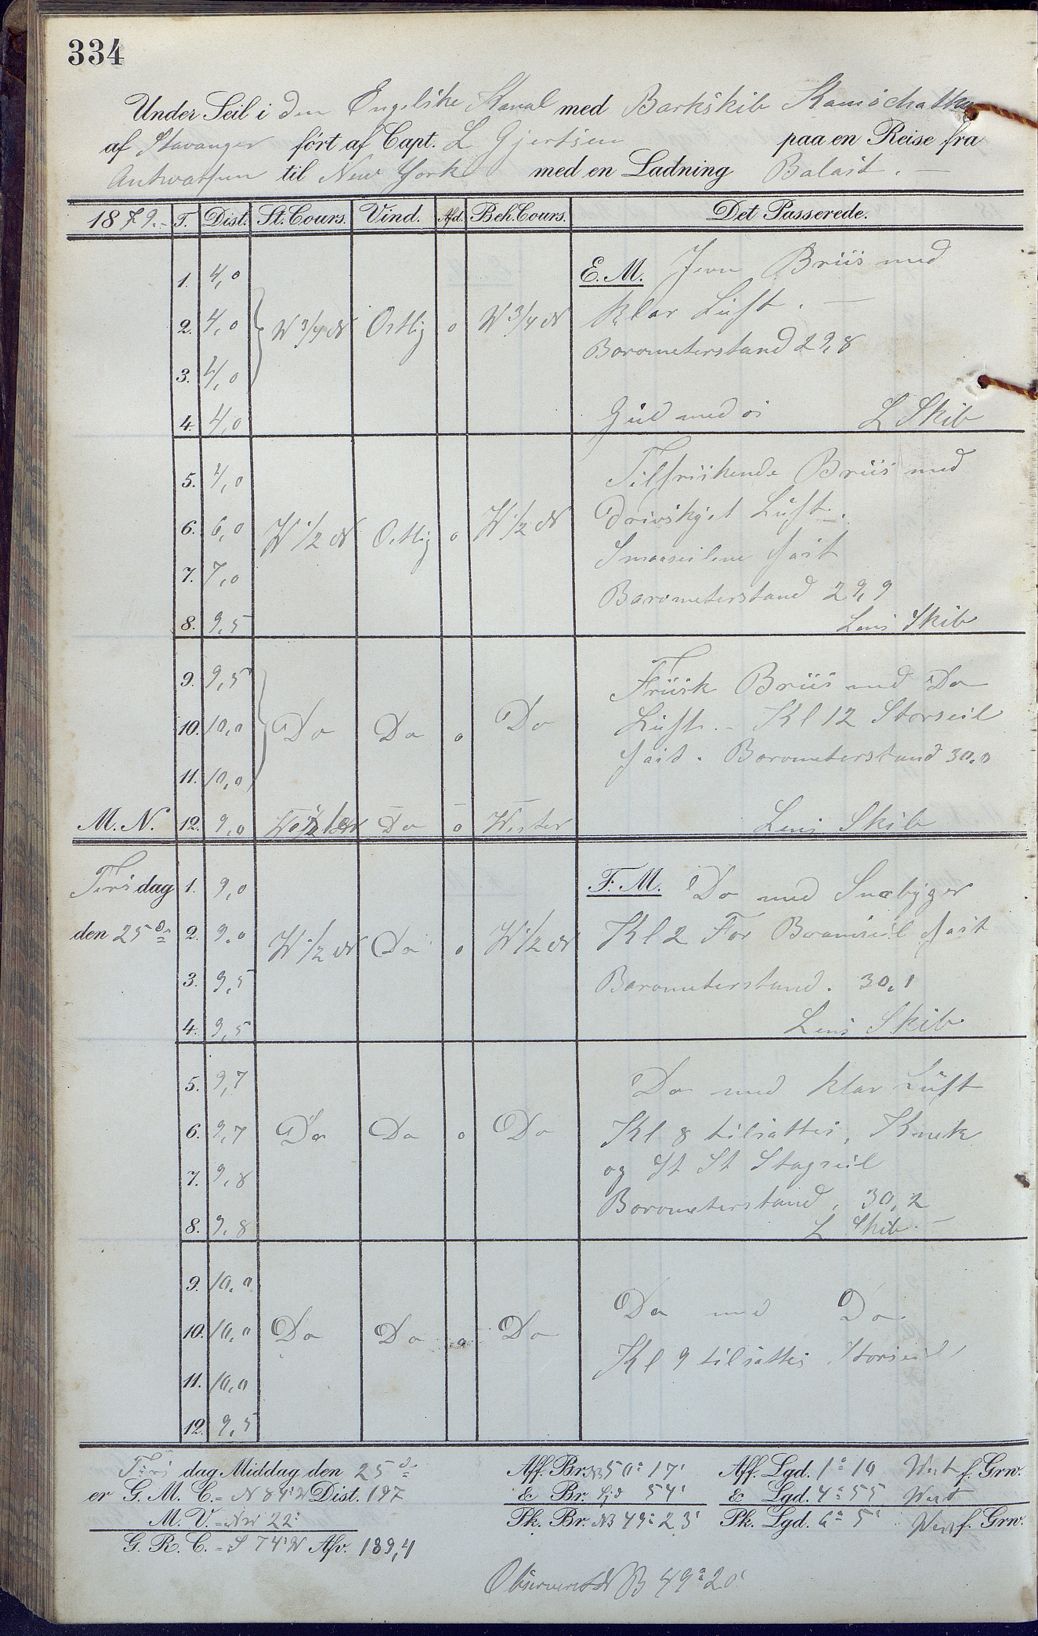 334
Under Seil i den Engelske Kanal med Barkskib Kamschatka
af Stavanger fört af Capt. L Gjertsen paa en Reise fra
Antwarpen til New York med en Ladning Balast. —
1879.- T. Dist. St. Cours. Vind. Afd. Beh. Cours. Det Passerede.
1. 4,0 E. M. Jevn Briis med
2. 4,0 W 3/4 N Ostlig 0 W 3/4 N klar Luft. —
Barometerstand 29,8
3. 4,0
4. 4,0 L Skib
5. 4,0 Tilfriskende Briis med
6. 6,0 W 1/2 N Ostlig 0 W 1/2 N drivskyet Luft.
7. 7,0 Smaaseilene fast
Barometerstand 29,9
8. 9,5 Lens Skib
9. 9,5 Frisk Briis med Do
10. 10,0 Do Do 0 Do Luft. - Kl 12 Storseil
11. 10,0 fast. Barometerstand 30,0
M. N. 12. 9,0 Do 0 Wester Lens Skib
Tirsdag 1. 9,0 F. M. Do med Snebyger
den 25de 2. 9,0 W 1/2 N Do 0 W 1/2 N Kl 2 For Bramseil fast
3. 9,5 Barometerstand. 30,1
4. 9,5 Lens Skib
5. 9,7 Do med klar Luft
6. 9,7 Do Do 0 Do Kl 8 tilsattes,
7. 9,8 og St St Stagseil
Barometerstand, 30,2
8. 9,8 L Skib. —
9. 10,0 Do med Do.
10. 10,0 Do Do 0 Do
11. 10,0 Kl 9 tilsattes Storseil
12. 9,5
Tirsdag Middag den 25de Aff. Br. N 50° 17' Aff. Lgd. 1° 10 West f. Grw.
er G. M. C. - N 84° W Dist. 197 & Br. Syd 54' & Lgd. 4° 55 West
M. V. - NW 22° Pk. Br. N 49° 23' Pk. Lgd. 6° 5' West f. Grw.
G. R. C. - S 74° W Afv. 189,4
Observeret N B 49° 20'